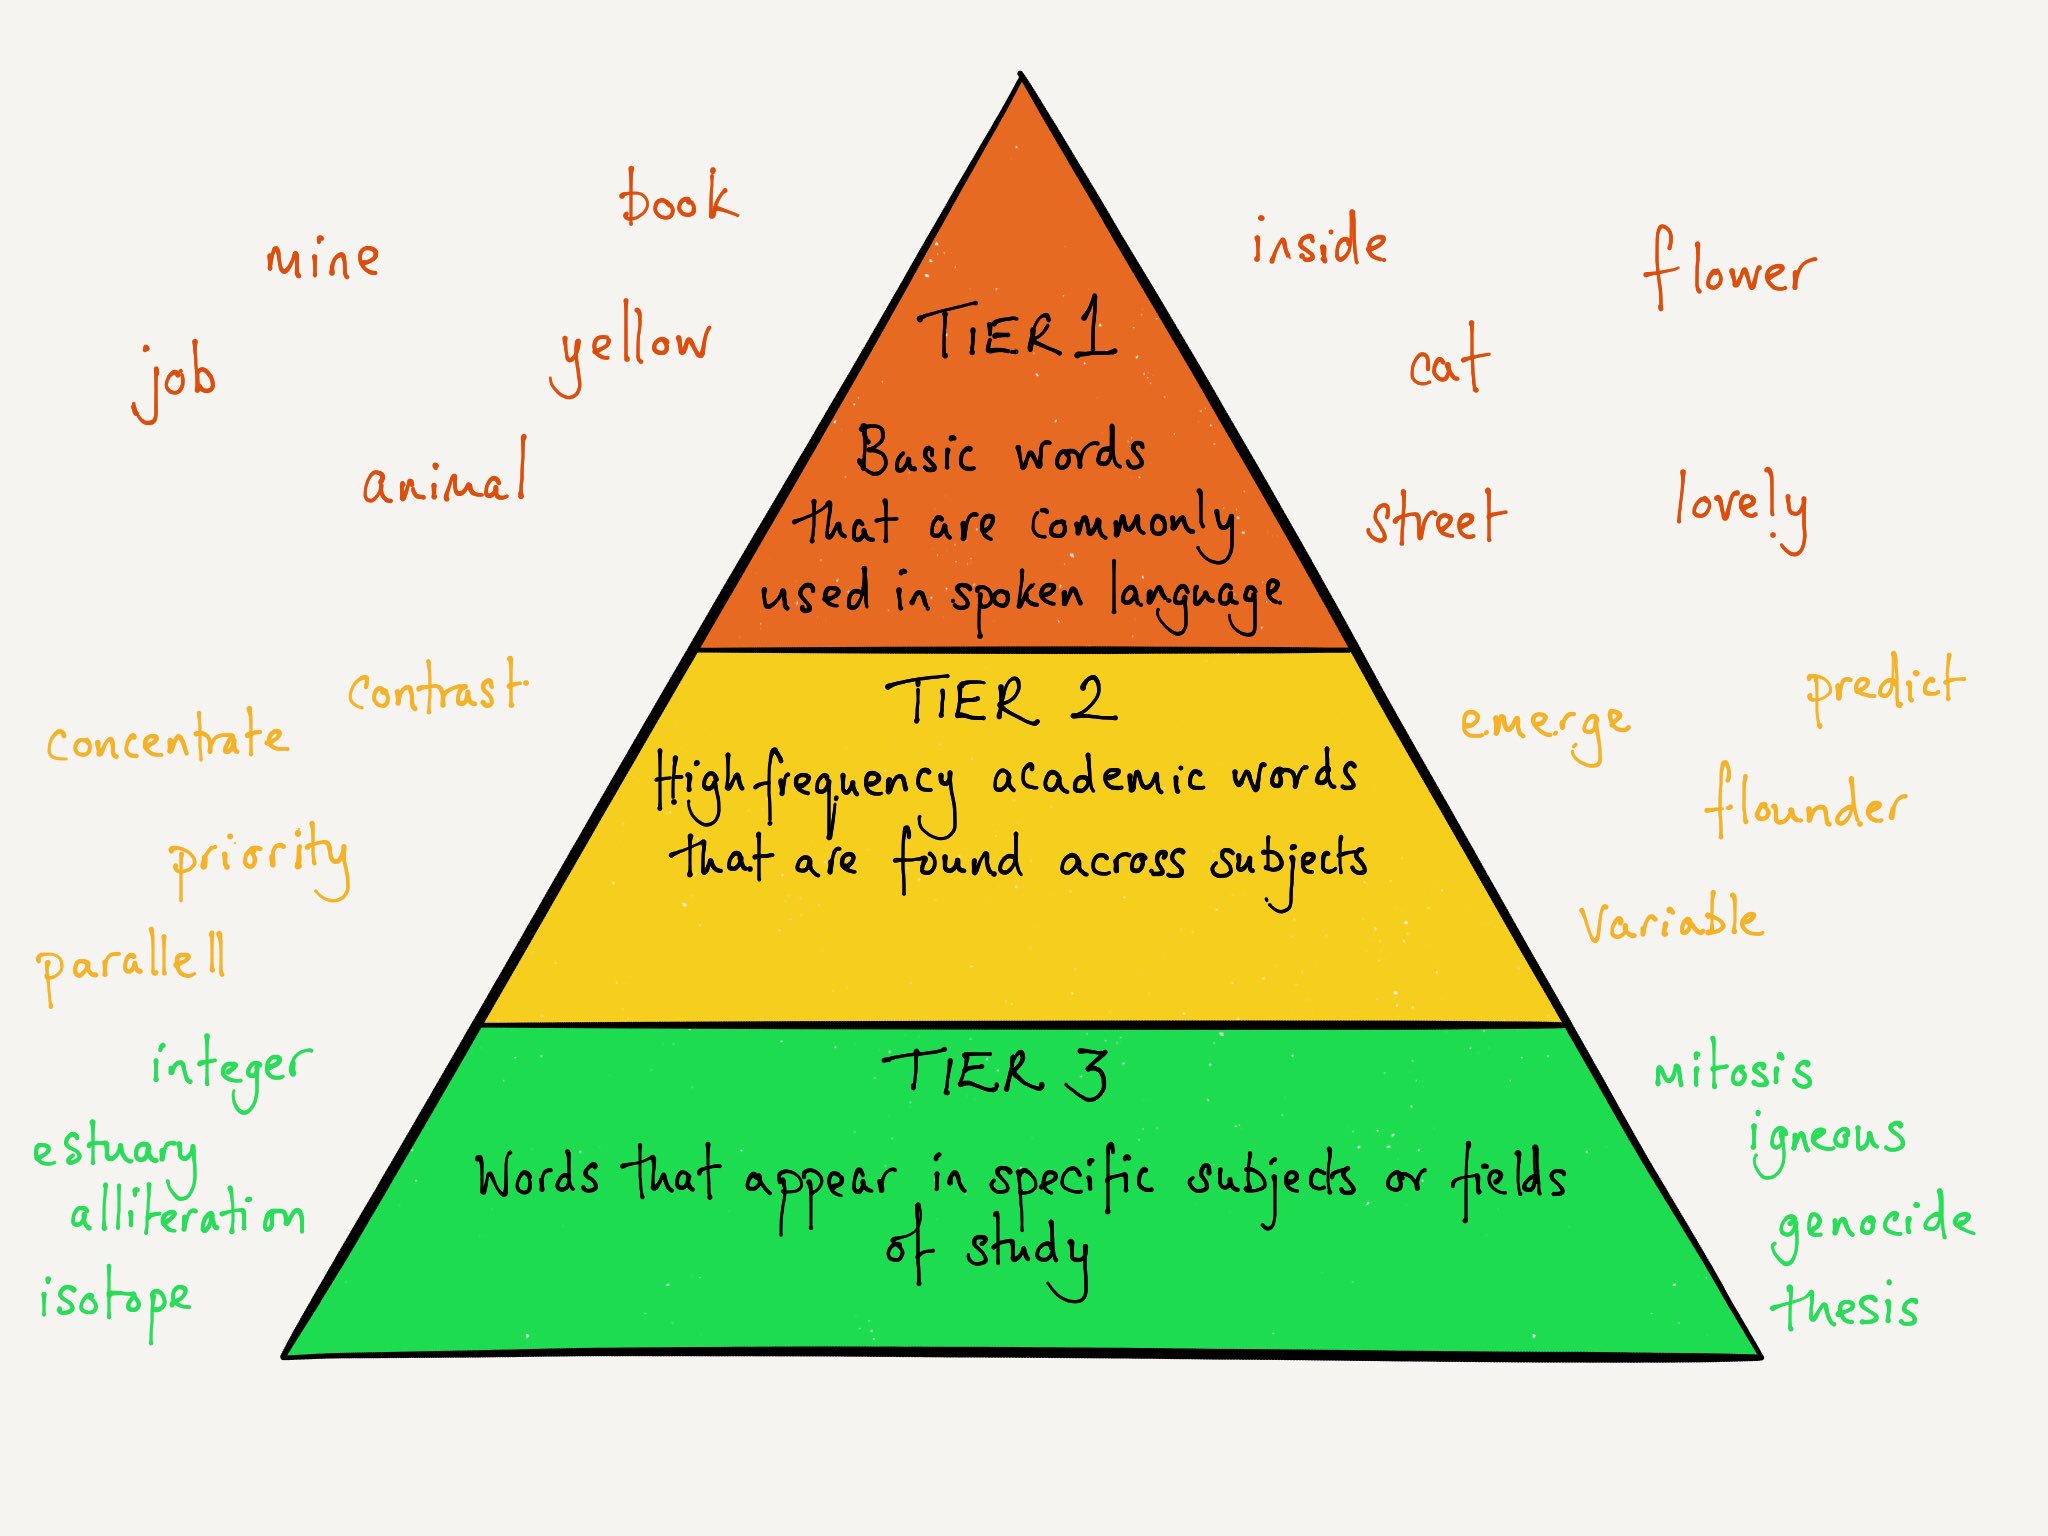 book
mine
yellow
job
animal
inside
flower
cat
street
lovely
TIER 1
Basic words
that are commonly
used in spoken language
contrast
concentrate
priority
parallell
predict
emerge
flounder
variable
TIER 2
High frequency academic words
that are found across subjects
integer
estuary
alliteration
isotope
mitosis
igneous
genocide
thesis
TIER 3
Words that appear in specific subjects or fields
of study